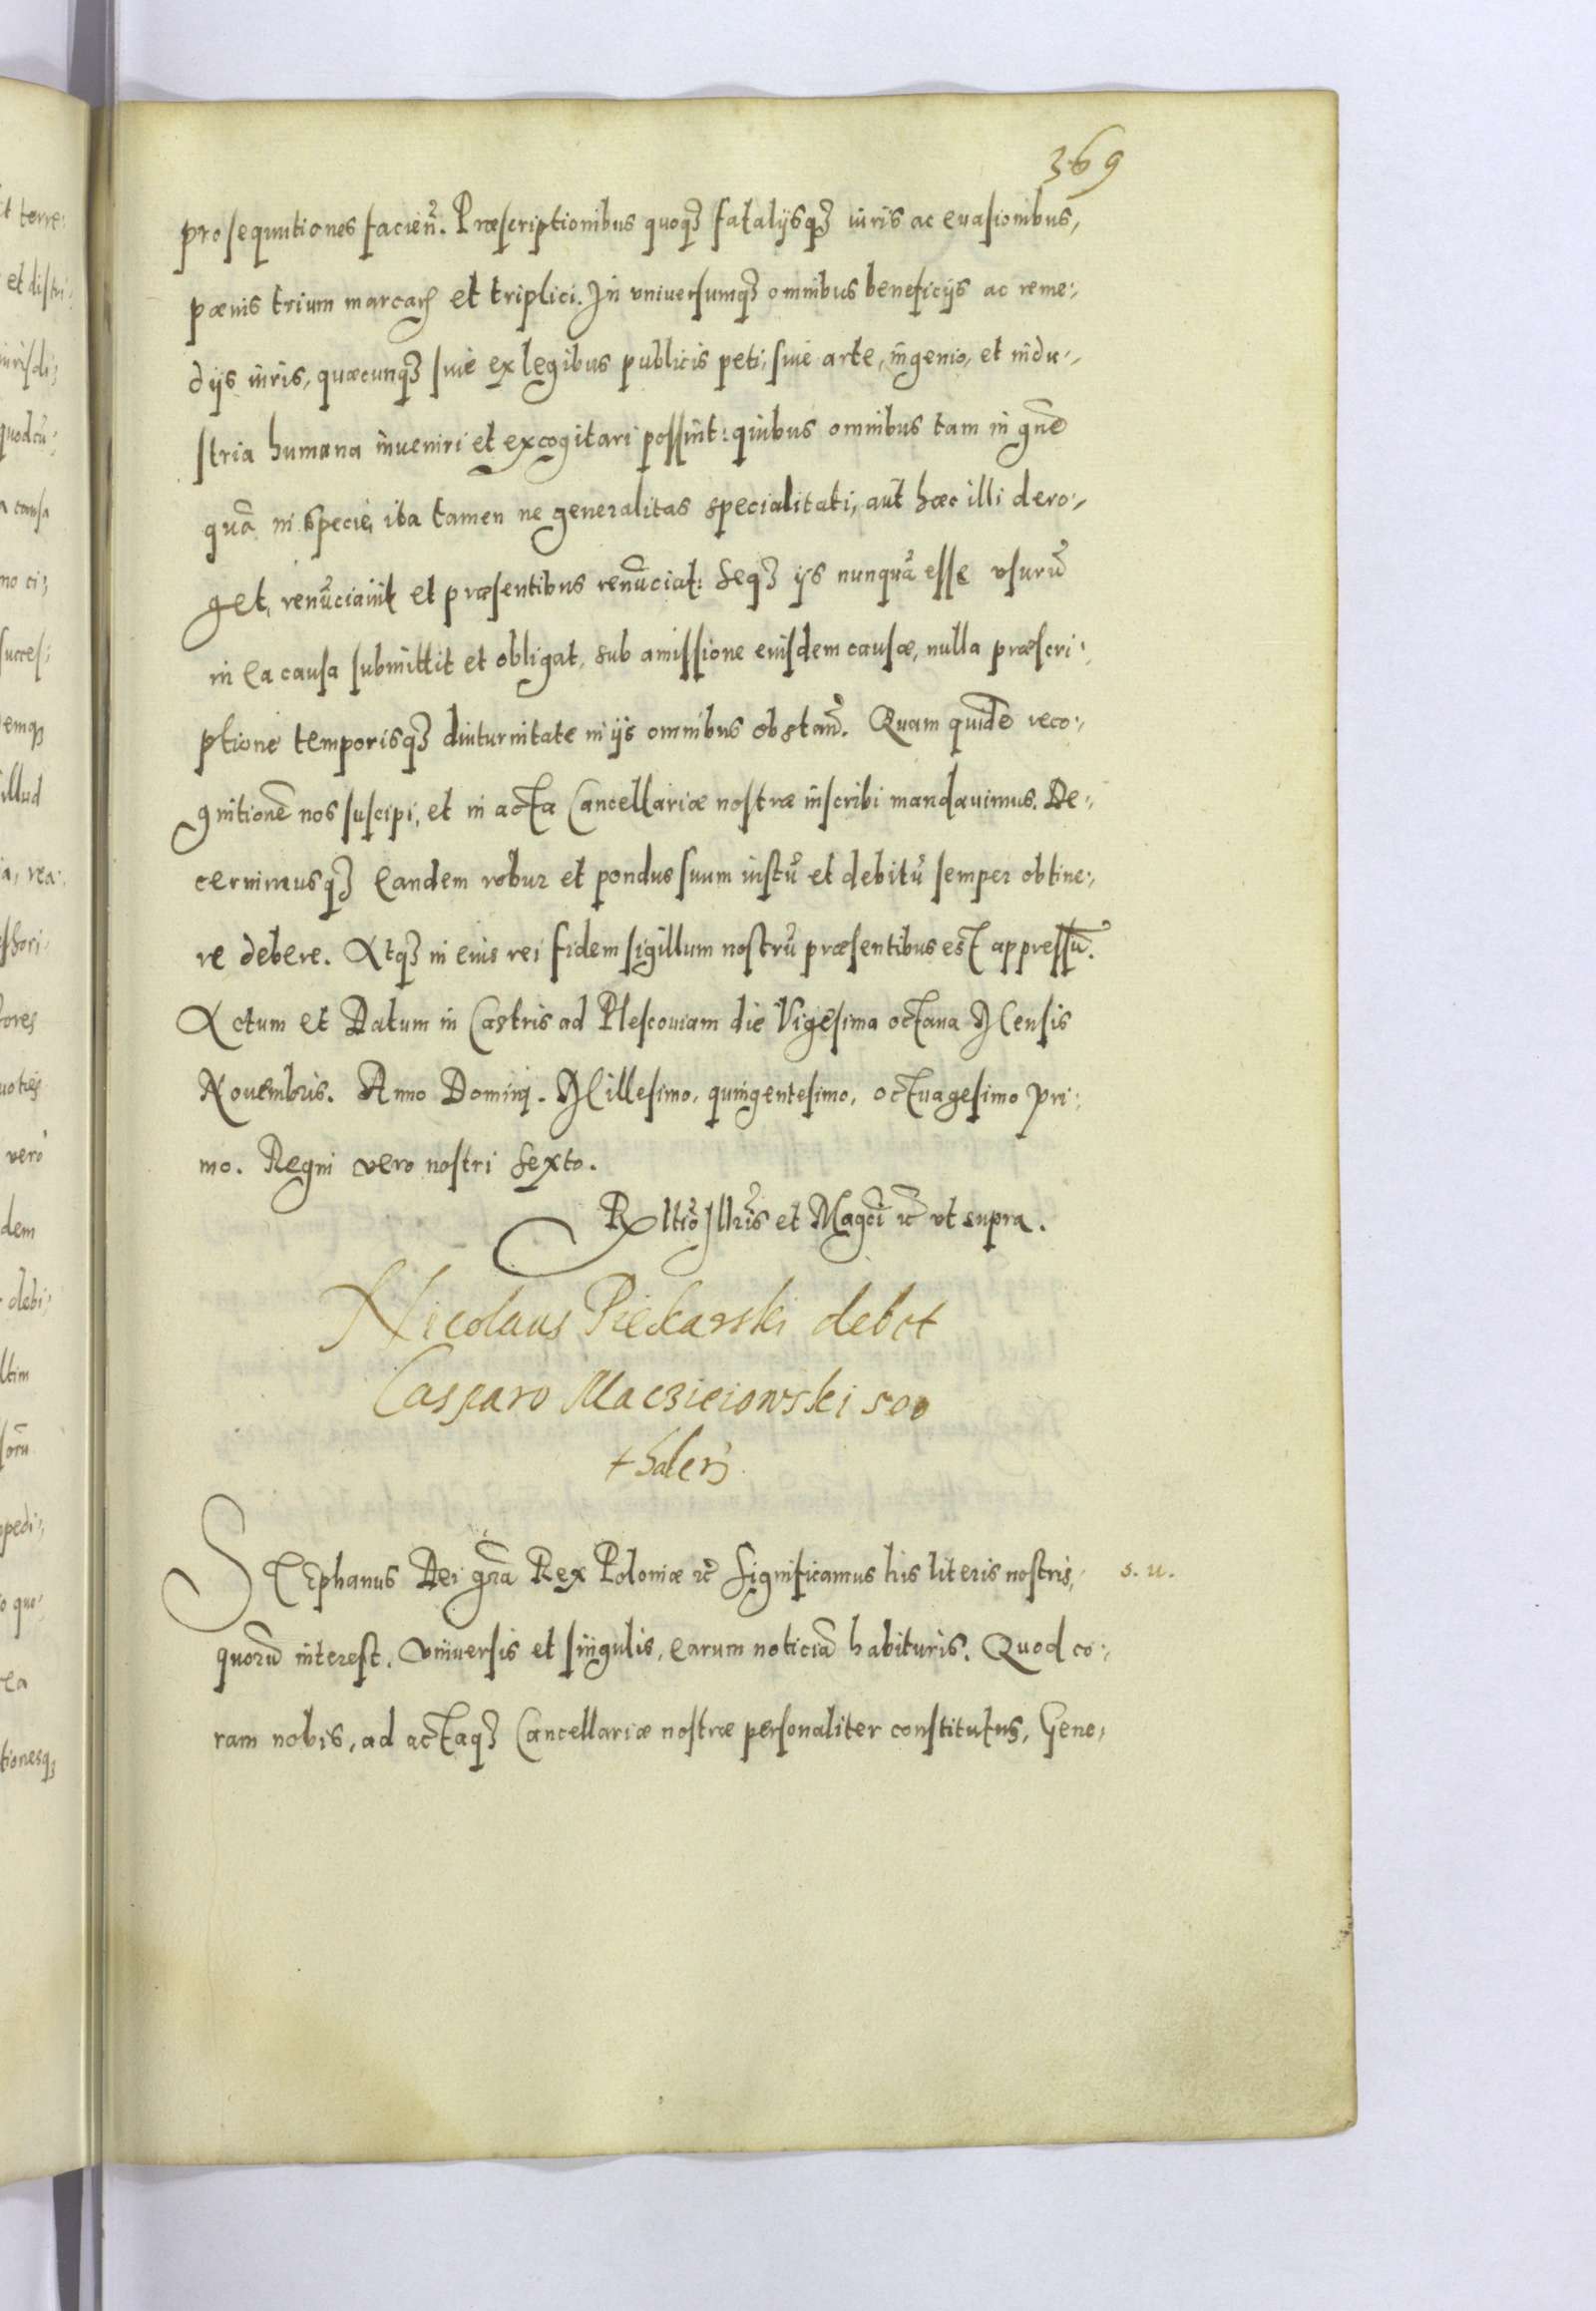 369
prosequutiones facien̄. Præscriptionibus quoqʒ fatalijsqʒ iuris ac euasionibus,
pœnis trium marcarꝫ et triplici. In vniuersumqʒ omnibus beneficijs ac reme:,
dijs iuris, quæcunqʒ siue ex legibus publicis peti, siue arte, ingenio, et indu:,
stria humana inueniri et excogitari possint: quibus omnibus tam in gn̄e
quā in specie, ita tamen ne generalitas specialitati, aut hæc illi dero:,
get, renūciauit et præsentibus renūciat: seqʒ ijs nunquā esse vsurū
in ea causa submittit et obligat, sub amissione eiusdem causæ, nulla præscri:,
ptione temporisqʒ diuturnitate in ijs omnibus obstan̄. Quam quidē reco:,
gnitionē nos suscipi, et in acta Cancellariæ nostræ inscribi mandauimus. De:,
cernimusqʒ eandem robur et pondus suum iustū et debitū semper obtine:,
re debere. Atqʒ in eius rei fidem sigillum nostrū præsentibus est appressū.
Actum et Datum in Castris ad Plescouiam die Vigesima octaua Mensis
Nouembris. Anno Domini. Millesimo, quingentesimo, octuagesimo pri:
mo. Regni vero nostri sexto.
Rltio Illris et Magci ꝛc vt supra.
Nicolaus Piekarski debet
Casparo Maczieiowski 500
thaleros
Stephanus Dei gr̄a Rex Poloniæ ꝛc Significamus his literis nostris,
s. u.
quorū interest. Vniuersis et singulis, earum noticiā habituris. Quod co:,
ram nobis, ad actaqʒ Cancellariæ nostræ personaliter constitutus, Gene,